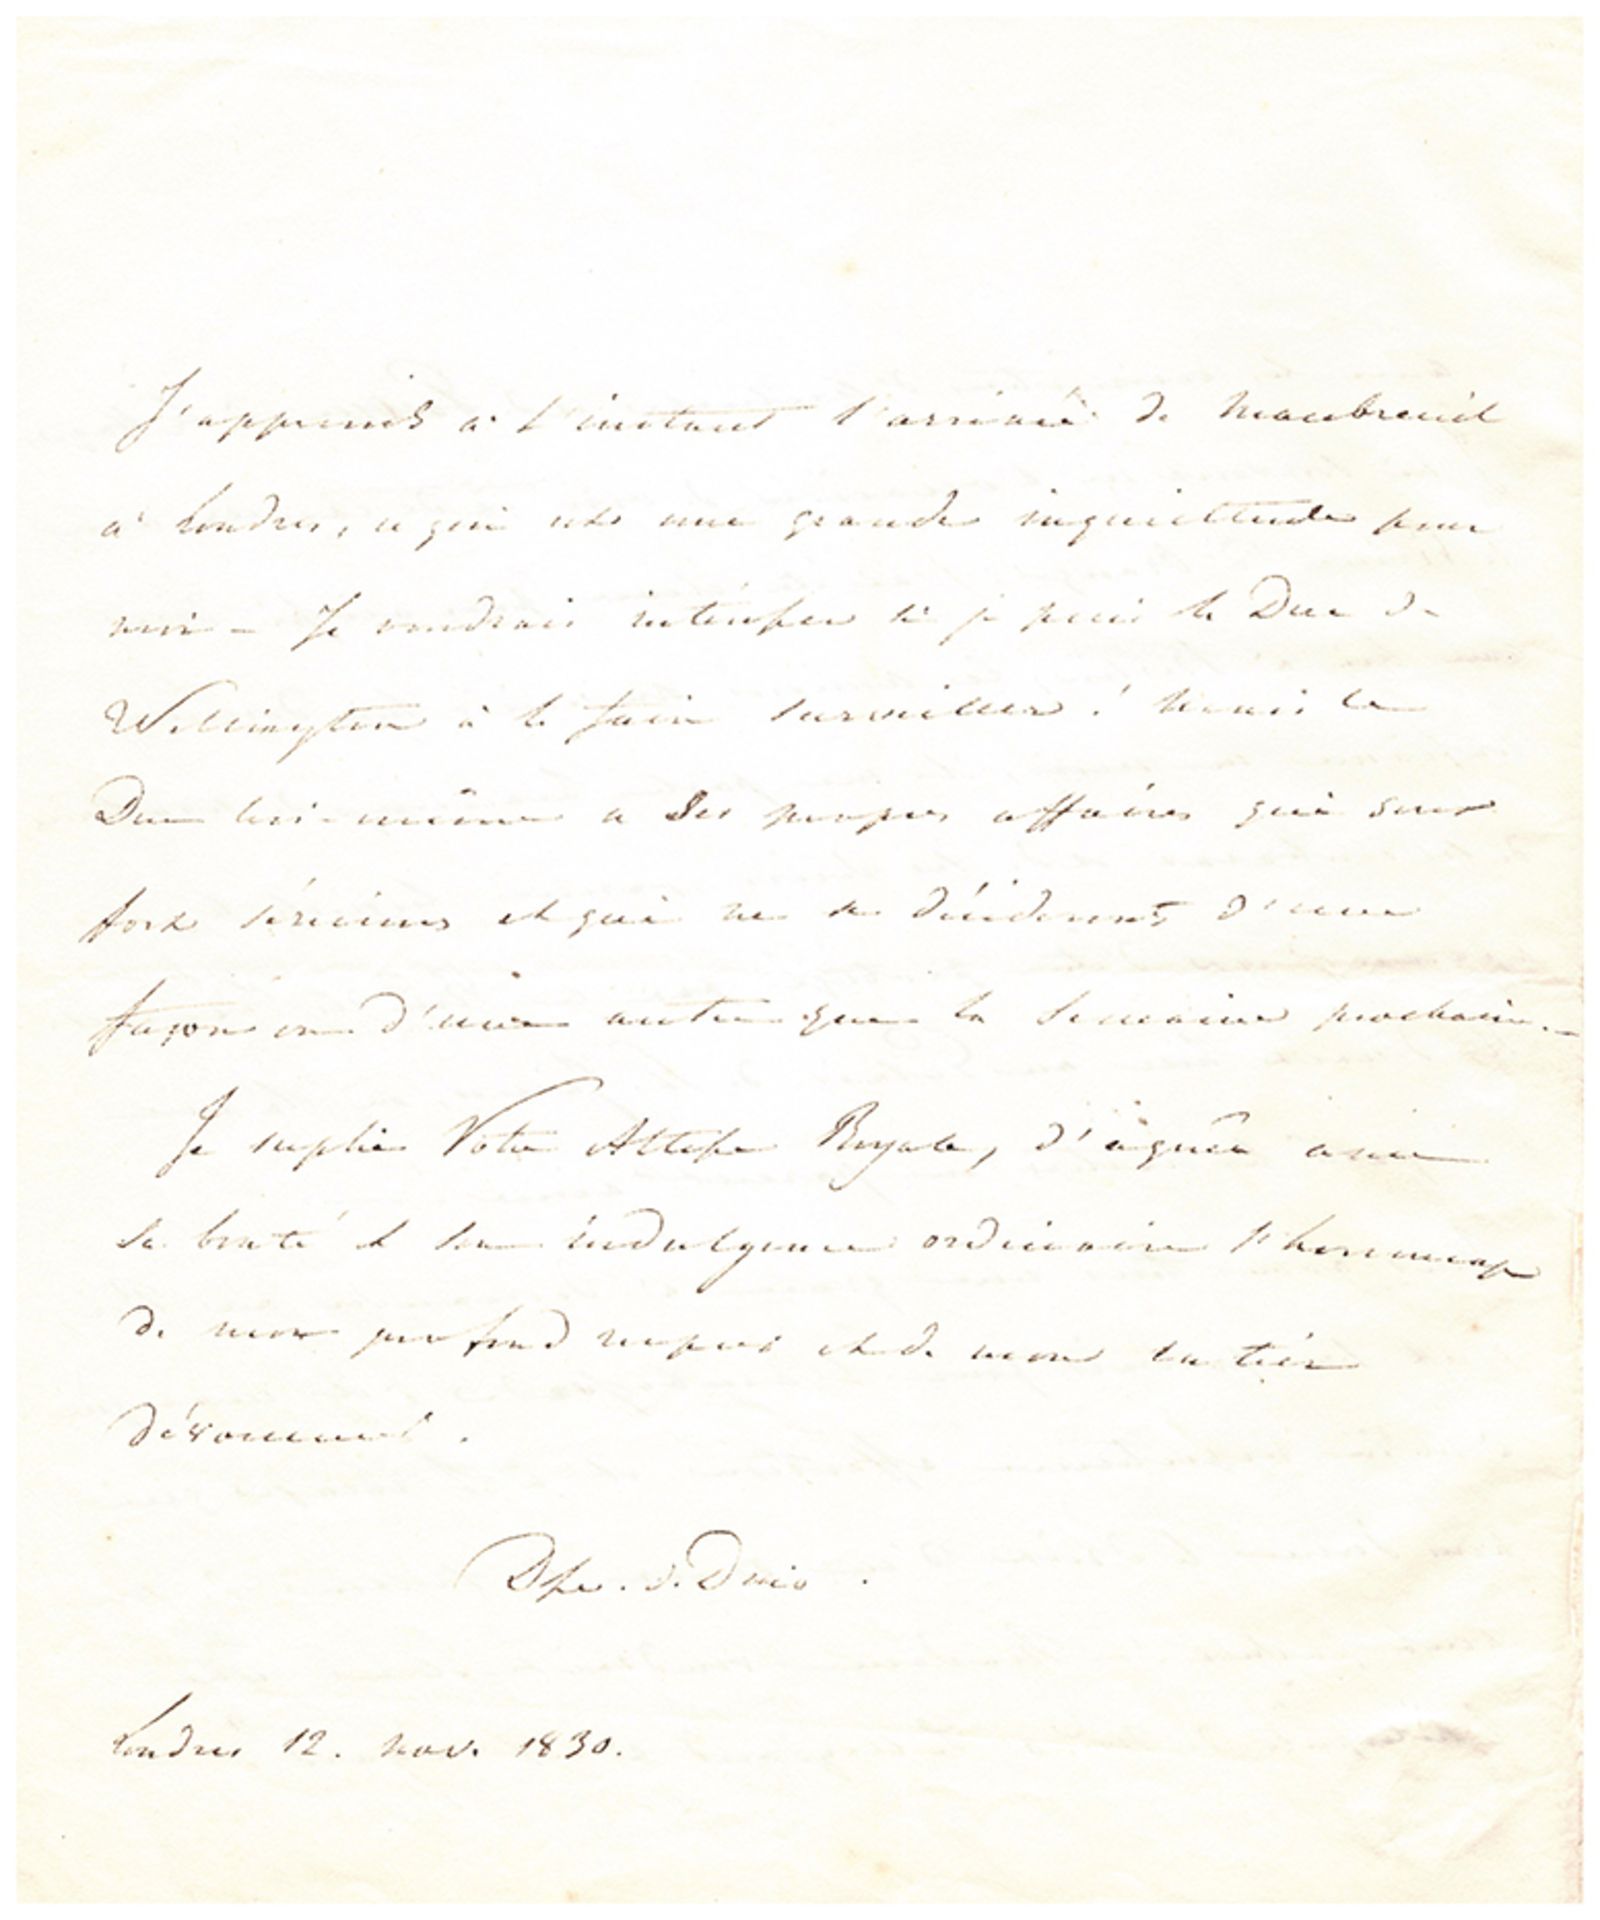 J'apprends à l'instant l'arrivée de Maubreuil
à Londres, ce qui est une grande inquiettude pour
moi - Je voudrais intéresser si je puis le Duc de
Wellington à le faire surveiller ! Mais le
Duc lui-même a des propres affaires qui sont
fort sérieuses et qui ne se décideront d'une
façon ou d'une autre que la semaine prochaine. -
Je supplie Votre Altesse Royale, d'agréer avec
sa bonté et son indulgence ordinaire l'hommage
de mon profond respect et de mon entier
dévouement .
Dsse. de Dino .
Londres 12. nov. 1830.